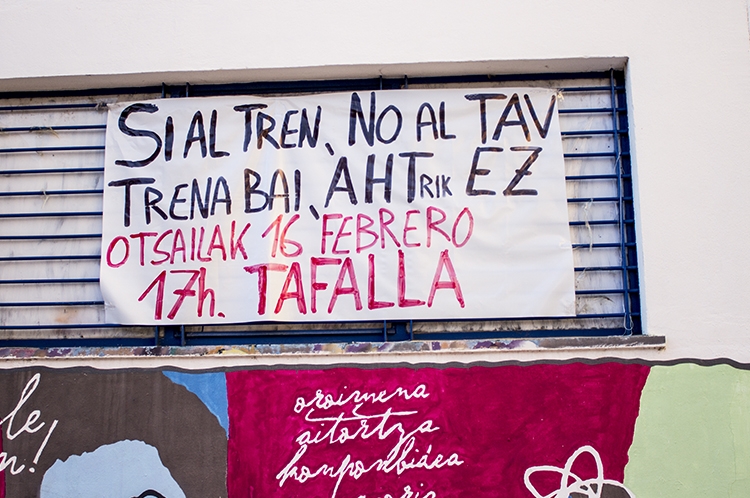 SI AL TREN, NO AL TAV
TRENA BAI, AHTRIK EZ
OTSAILAK 16 FEBRERO
17h. TAFALLA
le
n!
oroimena
aitortza
konponbidea